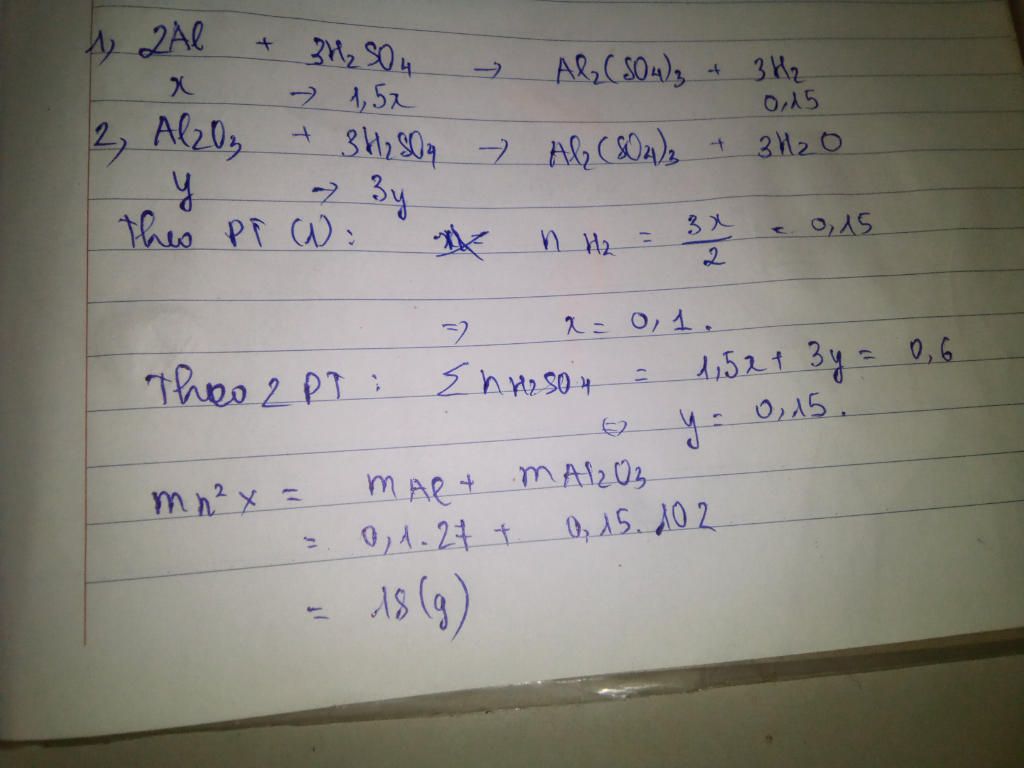 1, 2Al + 3H₂SO₄ → Al₂(SO₄)₃ + 3H₂
x → 1,5x 0,15
2, Al₂O₃ + 3H₂SO₄ → Al₂(SO₄)₃ + 3H₂O
y → 3y
Theo PT (1): n H₂ = 3x/2 = 0,15
=> x = 0,1.
Theo 2 PT: Σ n H₂SO₄ = 1,5x + 3y = 0,6
⇔ y = 0,15.
m h² X = m Al + m Al₂O₃
= 0,1.27 + 0,15.102
= 18 (g)